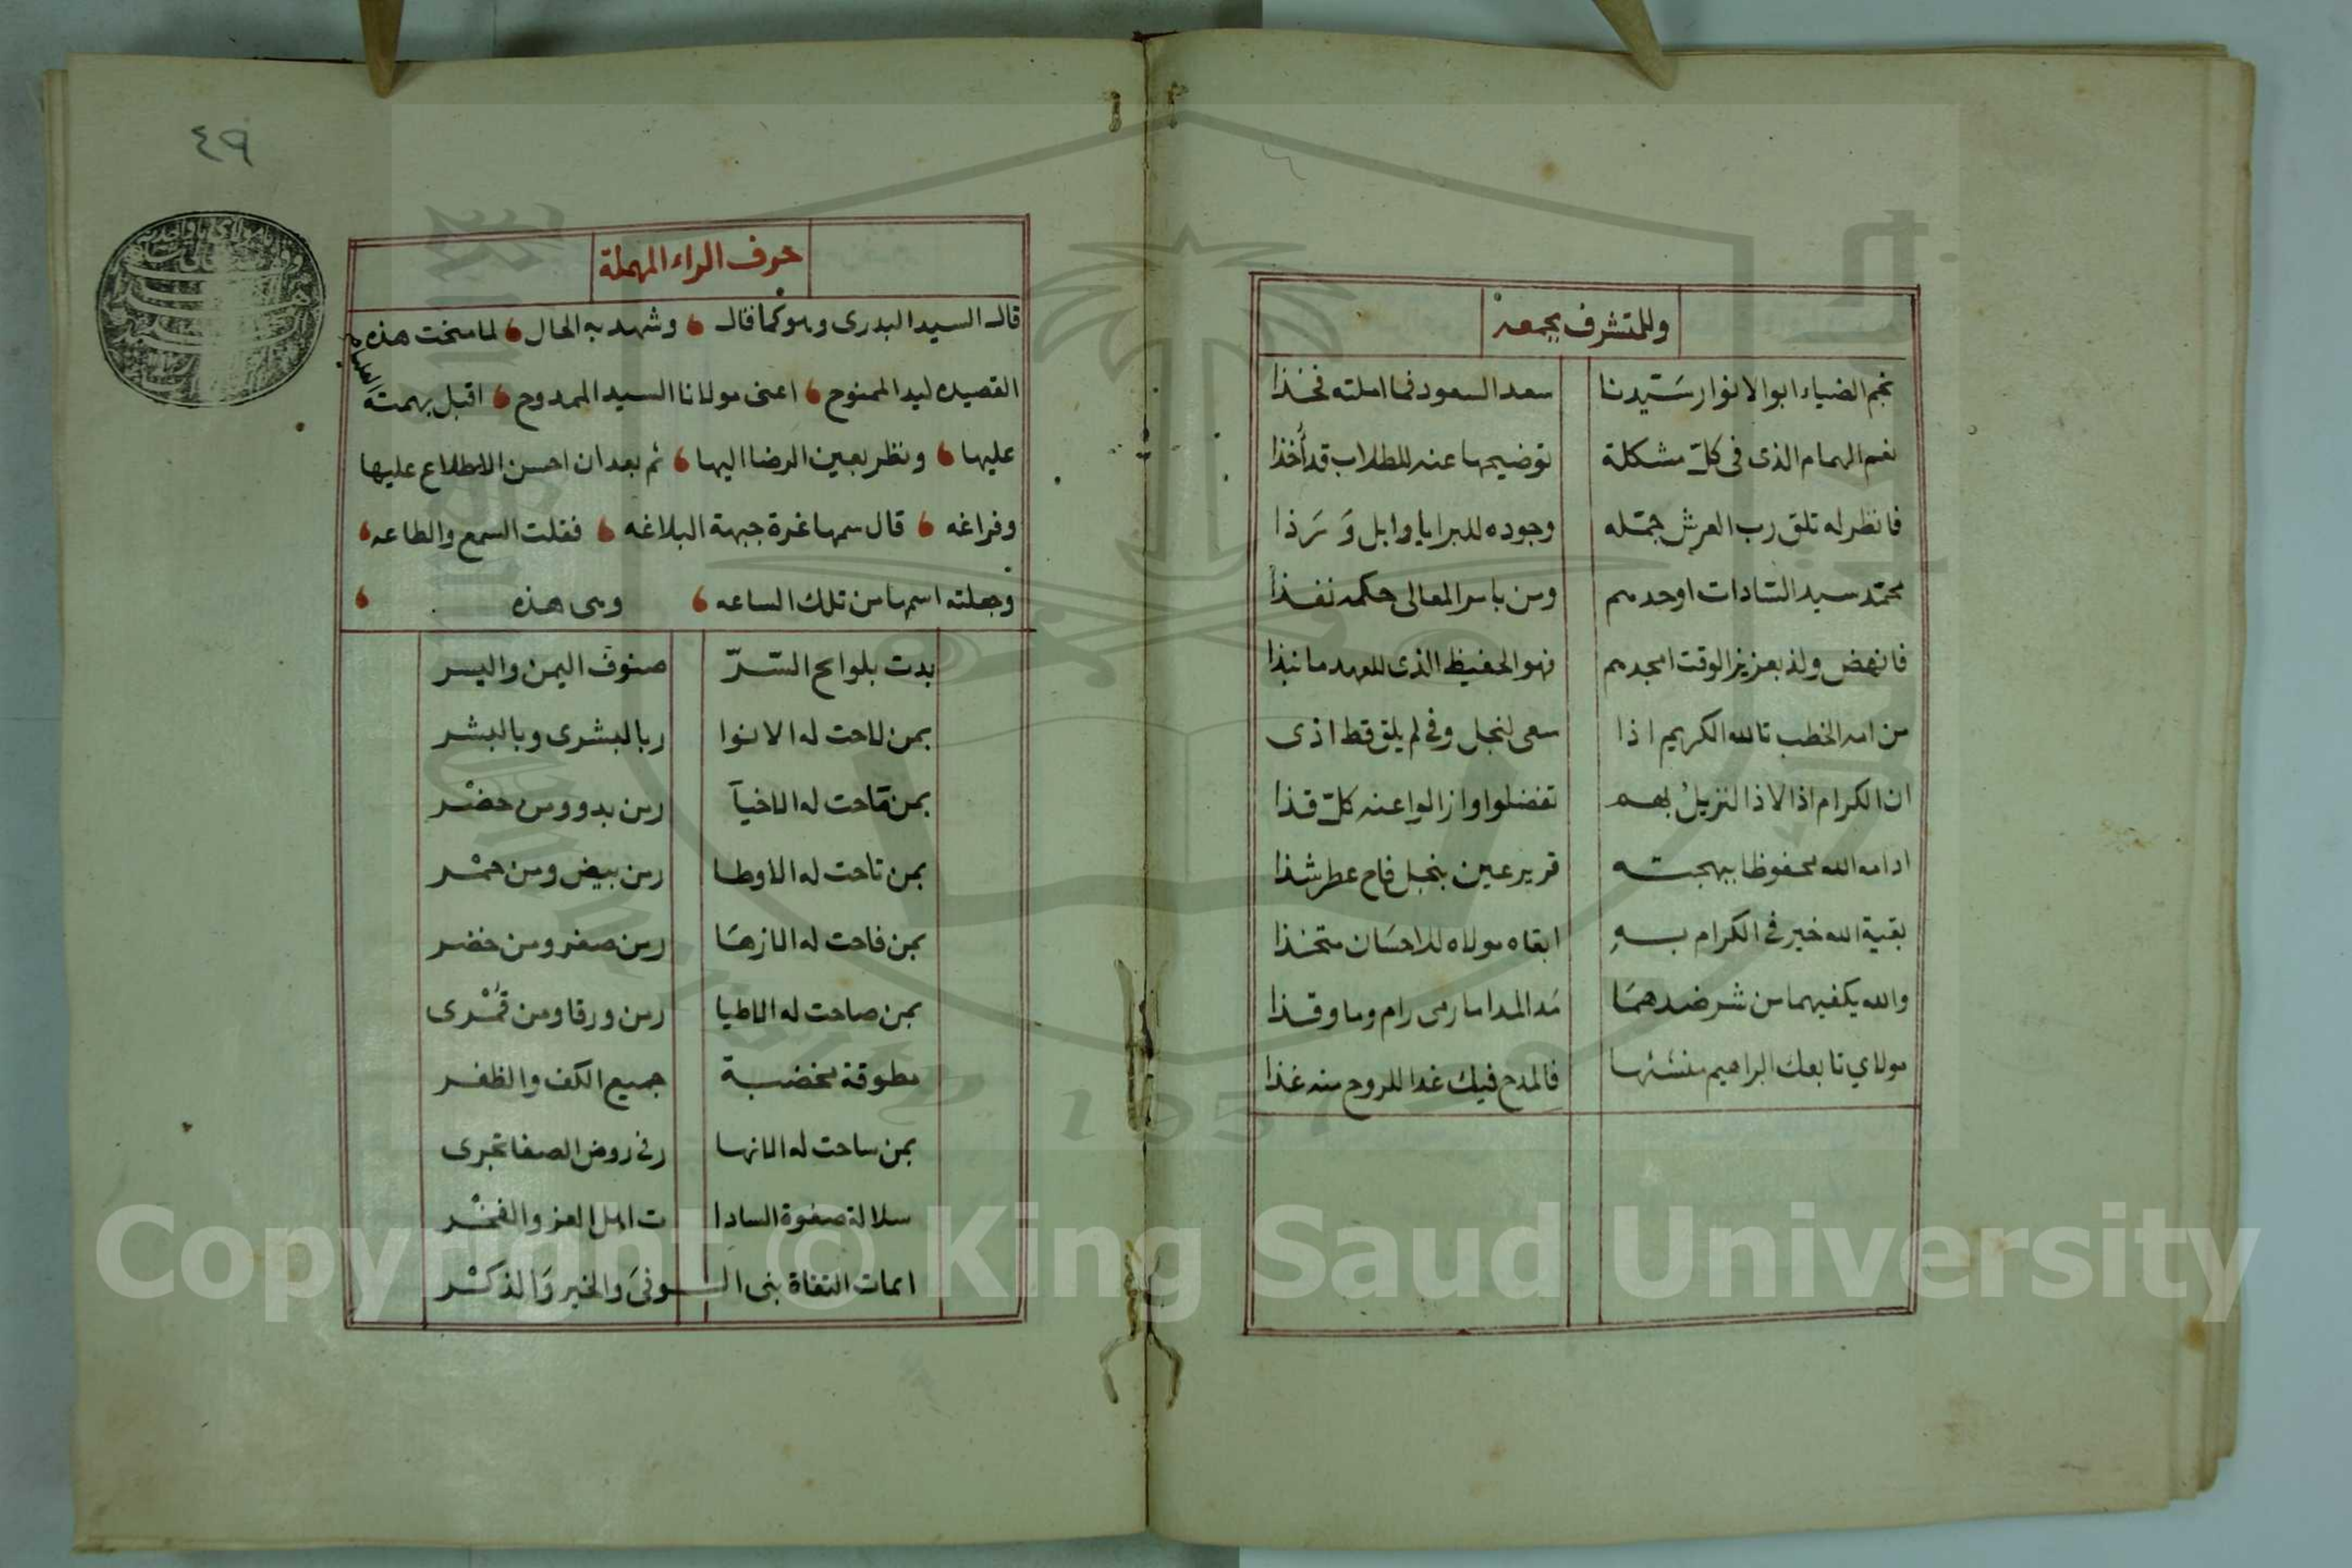 وللمتشرف بجمعه
نجم الضياء ابو الانوار سَيّدنا سعد السعود فما املته فخذا
نعم الهمام الذى فى كلّ مشكلة توضيحها عنه للطلاب قد أخذا
فانظر له تلق رب العرش جمّله وجوده للبرايا وابل وَرَذا
محمّد سيد السّادات اوحدهم ومن باسر المعالى حكمه نفذا
فانهض ولذ بعزيز الوقت امجدهم فهو الحفيظ الذى للعهد ما نبذا
من امه الخطب تالله الكريم اذا سعى لنجل وفى لم يلق قط اذى
ان الكرام اذا لاذ النزيل بهم تفضلوا وازالوا عنه كلّ قذا
ادامه الله محفوظا ببهجته قرير عين بنجل فاح عطر شذا
بقية الله خير فى الكرام بهِ ابقاه مولاه للاحسَان متخذا
والله يكفيهما من شر ضدهمَا مَد المدا ما رمى رام وما وقذا
مولاي تابعك ابراهيم منشئها فالمدح فيك غدا للروح منه غذا
٤٩
حرف الراء المهملة
قال السيد البدرى وهو كما قال وشهد به الحال لما منحت هذه
القصيده ليد الممنوح اعنى مولانا السيد الممدوح اقبل بهمته العليه
عليها ونظر بعين الرضا اليها ثم بعد ان احسن الاطلاع عليها
وفراغه قال سمها غرة جبهة البلاغه فقلت السمع والطاعه
وجعلته اسمها من تلك الساعه وهى هذه
بدت بلوايح السّرّ صنوف اليمن واليسر
بمن لاحت له الانوا ر بالبشرى وبالبشر
بمن ناحت له الاخيآ ر من بدو ومن حضْر
بمن تاحت له الاوطا ر من بيض ومن حمْر
بمن فاحت له الازهَا ر من صفر ومن خضر
بمن صاحت له الاطيا ر من ورقا ومن قمْرى
مطوقة مخضبة جميع الكف والظفر
بمن ساحت له الانها ر فى روض الصفا تجرى
سلالة صفوة السادا ت اهل العز والفخْر
امات التقاة بنى الـوفىَ والخير وَالذكْر
Copyright © King Saud University
1957